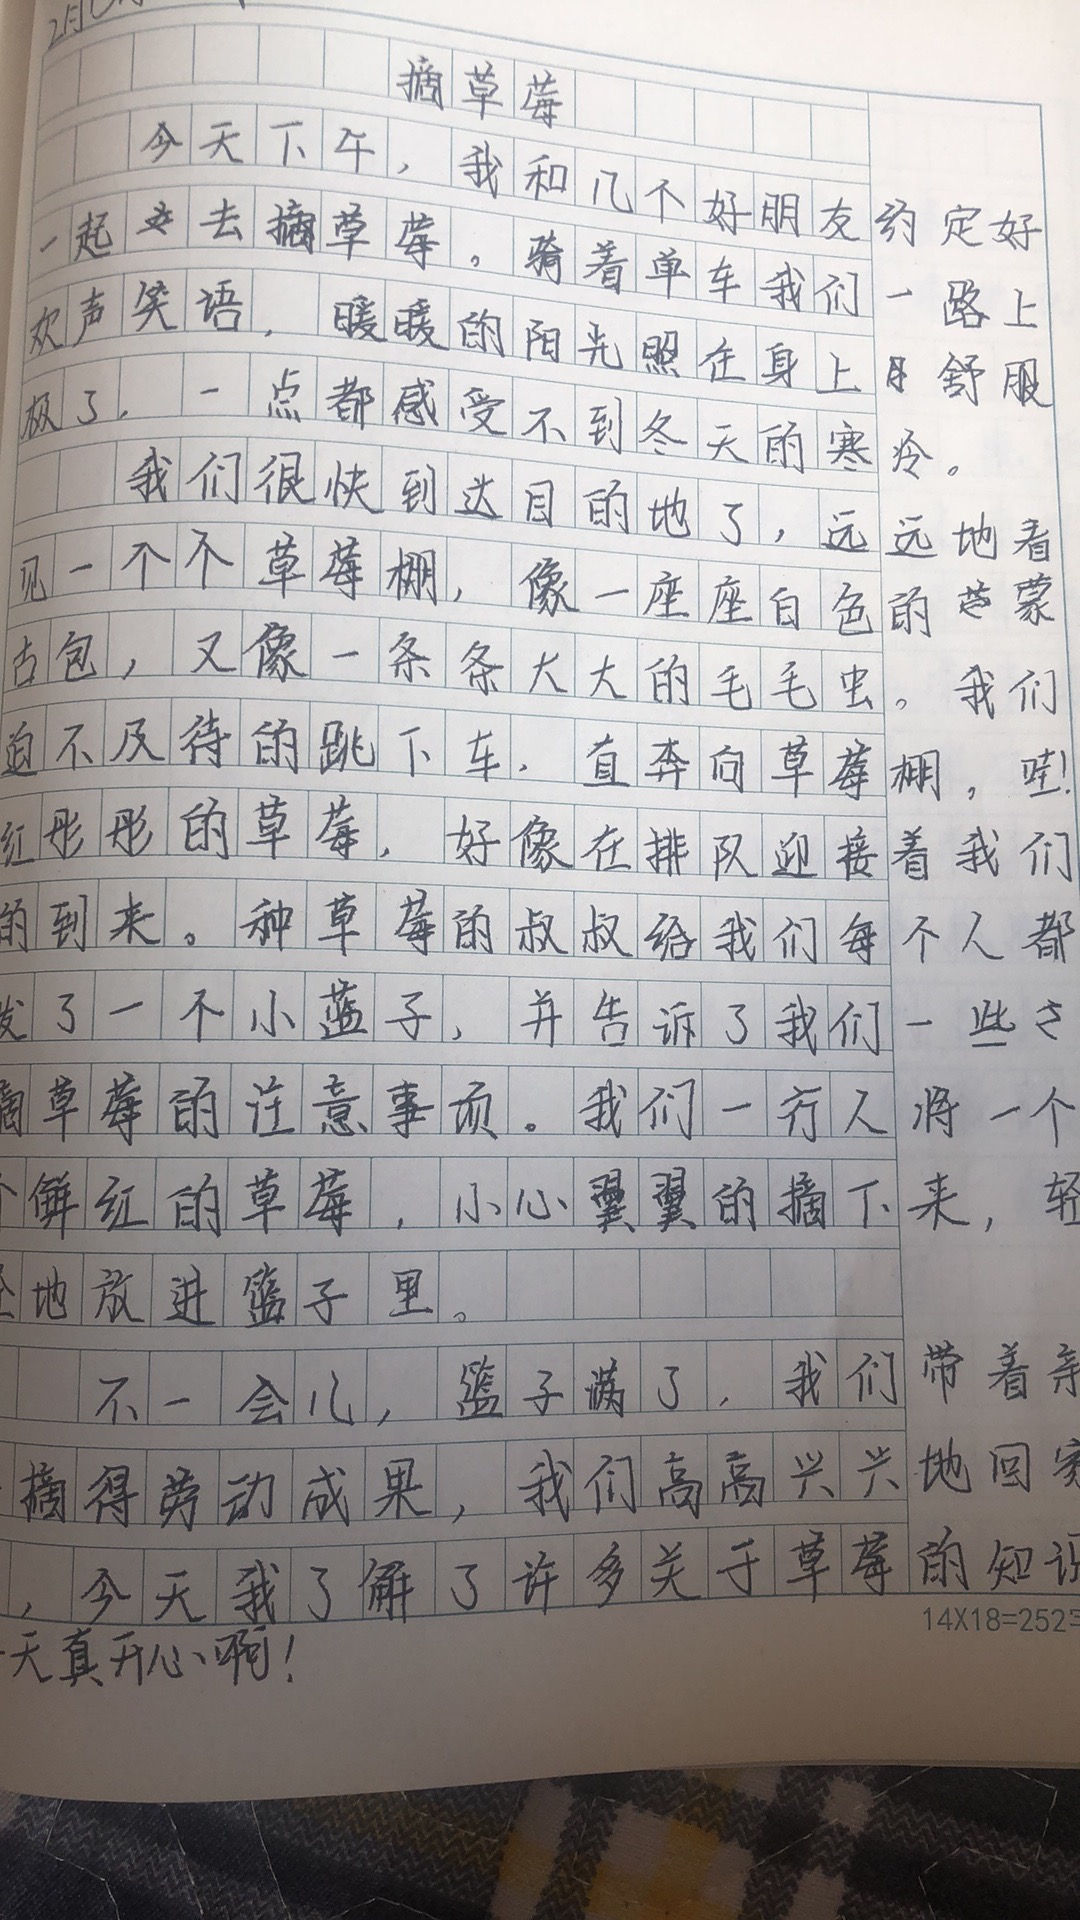 摘草莓
今天下午，我和几个好朋友约定好
一起去摘草莓。骑着单车我们一路上
欢声笑语，暖暖的阳光照在身上舒服
极了，一点都感受不到冬天的寒冷。
我们很快到达目的地了，远远地看
见一个个草莓棚，像一座座白色的蒙
古包，又像一条条大大的毛毛虫。我们
迫不及待的跳下车，直奔向草莓棚，哇！
红彤彤的草莓，好像在排队迎接着我们
的到来。种草莓的叔叔给我们每个人都
发了一个小蓝子，并告诉了我们一些
摘草莓的注意事项。我们一行人将一个
个鲜红的草莓，小心翼翼的摘下来，轻
轻地放进篮子里。
不一会儿，篮子满了，我们带着亲
摘得劳动成果，我们高高兴兴地回家
，今天我了解了许多关于草莓的知识
天真开心啊！
14X18=252